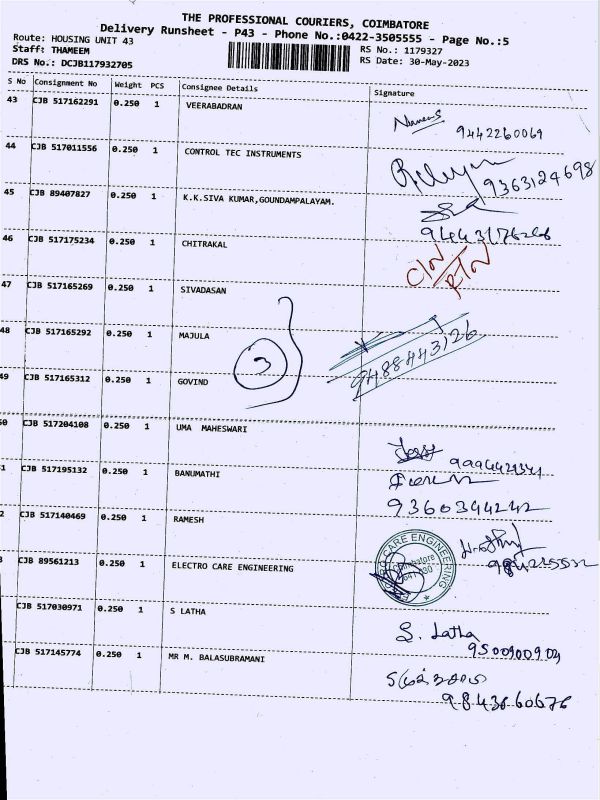 THE PROFESSIONAL COURIERS, COIMBATORE
Delivery Runsheet - P43 - Phone No.:0422-3505555 - Page No.:5
Route: HOUSING UNIT 43
Staff: THAMEEM
DRS No.: DCJB117932705
RS No.: 1179327
RS Date: 30-May-2023
S No Consignment No Weight PCS Consignee Details Signature
43 CJB 517162291 0.250 1 VEERABADRAN
9442260069
44 CJB 517011556 0.250 1 CONTROL TEC INSTRUMENTS
9363124698
45 CJB 89407827 0.250 1 K.K.SIVA KUMAR,GOUNDAMPALAYAM.
46 CJB 517175234 0.250 1 CHITRAKAL
47 CJB 517165269 0.250 1 SIVADASAN
48 CJB 517165292 0.250 1 MAJULA
3
9488443126
49 CJB 517165312 0.250 1 GOVIND
50 CJB 517204108 0.250 1 UMA MAHESWARI
51 CJB 517195132 0.250 1 BANUMATHI
9360344242
2 CJB 517140469 0.250 1 RAMESH
CJB 89561213 0.250 1 ELECTRO CARE ENGINEERING
CARE ENGINEERING
Coimbatore
CJB 517030971 0.250 1 S LATHA
S. Latha
9500900904
CJB 517145774 0.250 1 MR M. BALASUBRAMANI
9843660676